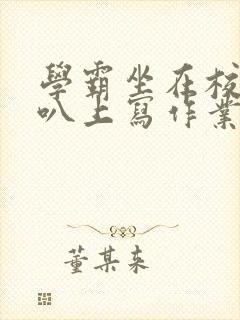 學霸坐在校
叭上寫作業
董某来